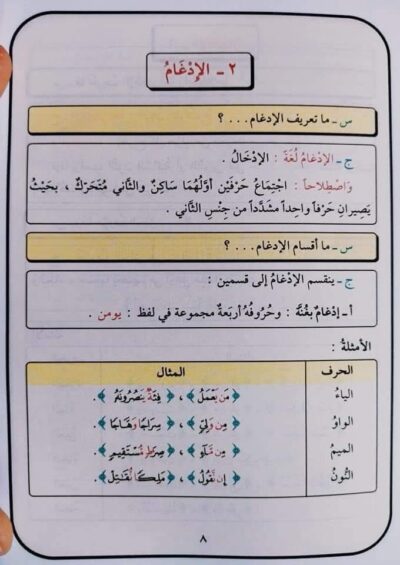 ٢ - الإِدْغَامُ
س - ما تعريف الإدغام . . . ؟
ج - الإِدْغَامُ لُغَةً : الإدْخَالُ .
وَاصْطِلاحاً : اجْتِمَاعُ حَرْفَيْنِ أَوَّلُهُمَا سَاكِنٌ والثَّاني مُتَحَرِّكٌ ، بِحَيْثُ
يَصِيرانِ حَرْفاً واحِداً مشدَّداً من جِنْسِ الثَّاني .
س - ما أقسام الإدغام . . . ؟
ج - ينقسم الإدْغامُ إلى قسمين :
أ - إدْغامٌ بغُنَّة : وحُرُوفُهُ أربَعَةٌ مجموعة في لفظ : يومن .
الأمثلةُ :
الحرف المثال
الياءُ ﴿ مَن يَعْمَلْ ﴾ ، ﴿ فِئَةٌ يَنصُرُونَهُ ﴾ .
الواوُ ﴿ مِن وَلِيٍّ ﴾ ، ﴿ سِرَاجًا وَهَّاجًا ﴾ .
الميمُ ﴿ مِن مَّآءٍ ﴾ ، ﴿ صِرَٰطٍ مُّسْتَقِيمٍ ﴾ .
النُّونُ ﴿ إِن نَّقُولُ ﴾ ، ﴿ مَلِكًا نُّقَٰتِلْ ﴾ .
٨